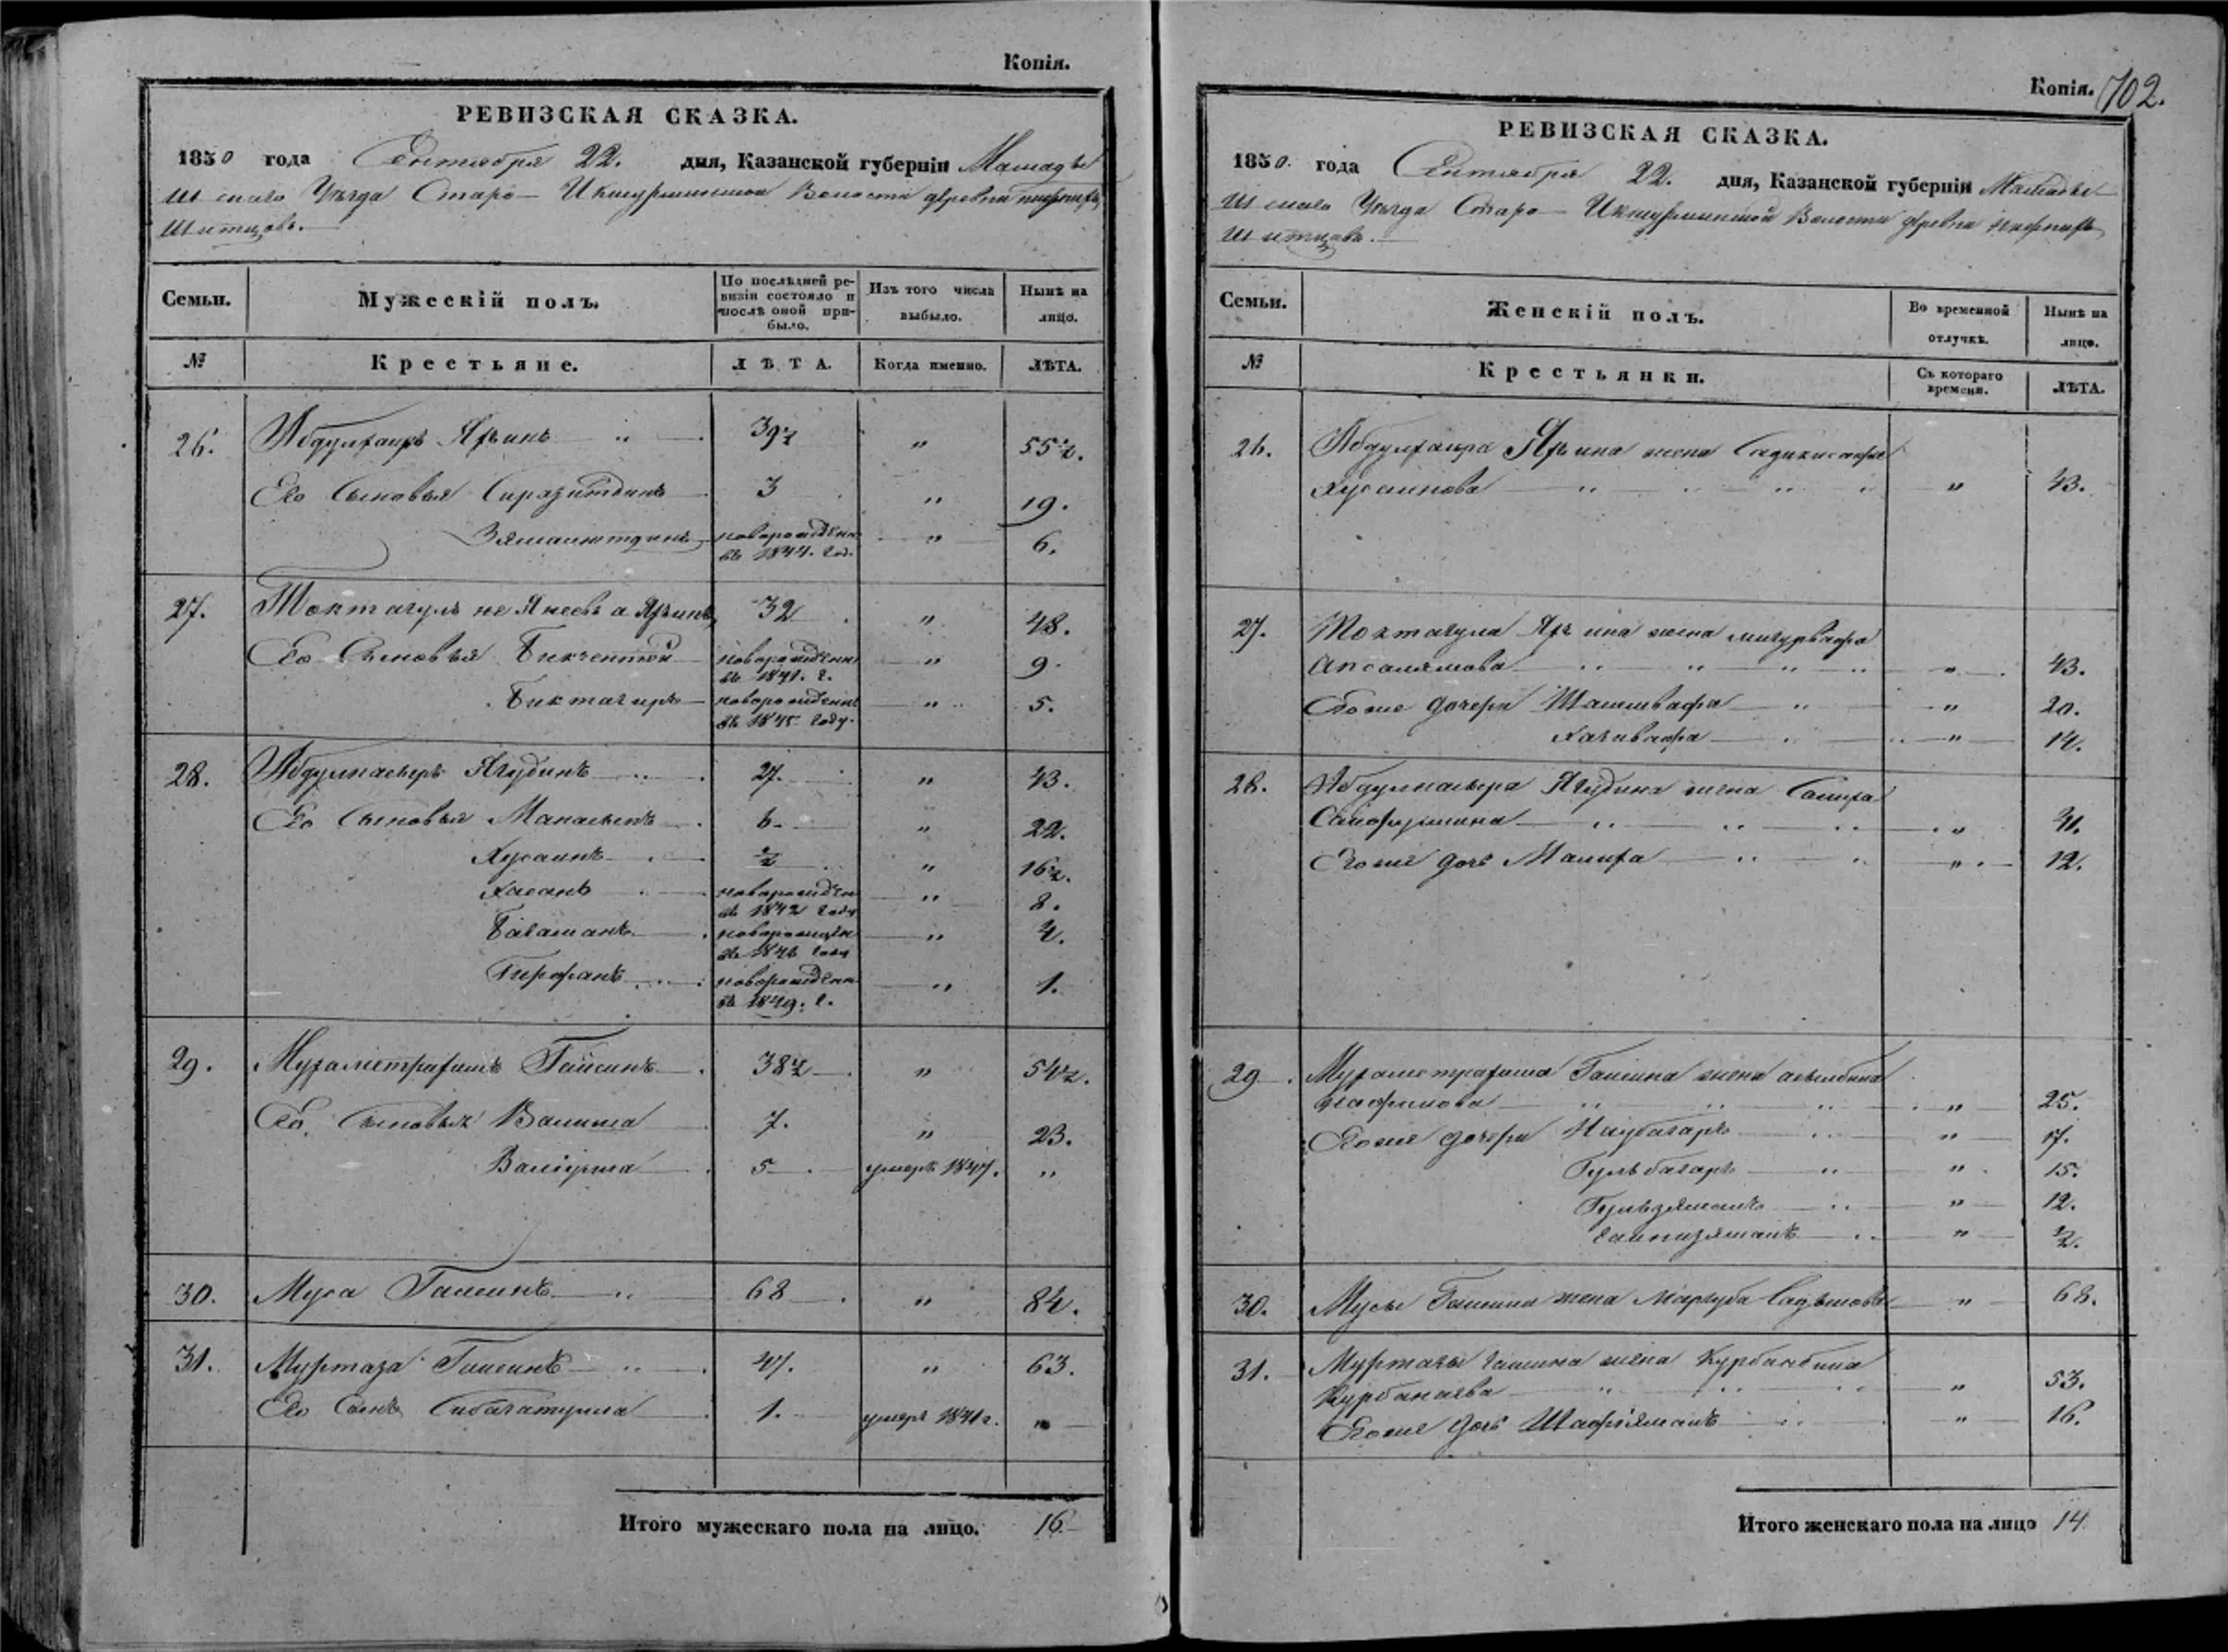 Копія.
РЕВИЗСКАЯ СКАЗКА.
1850 года Сентября 22. дня, Казанской губерніи Мамадъ
шскаго Уѣзда Старо-Икшурминской Волости деревни
Шитцовъ.
Семьи. Мужескій полъ. По послѣдней ревизіи состояло и послѣ оной прибыло. Изъ того числа выбыло. Нынѣ на лицо.
№ Крестьяне. ЛѢТА. Когда именно. ЛѢТА.
26. Абдулхаиръ Яхинъ 39½ " 55½.
Его Сыновья Сиразитдинъ 3 " 19.
Зямалитдинъ новорожденн въ 1844. год. " 6.
27. Токтагулъ не Янеевъ а Яхинъ 32 " 48.
Его Сыновья Бикчентей новорожденн въ 1841. г. " 9.
Биктагиръ новорожденн въ 1845 году. " 5.
28. Абдулнасыръ Ягудинъ 27. " 43.
Его Сыновья Манасыпъ 6. " 22.
Хусаинъ ½ " 16½.
Хасанъ новорожден въ 1842 году " 8.
Багаманъ новорожден въ 1846 году " 4.
Гирфанъ новорожденн въ 1849. г. " 1.
29. Мухаметрахимъ Гаисинъ 38½ " 54½.
Его Сыновья Валиша 7. " 23.
Валіулла 5 умеръ 1847. "
30. Муса Гаисинъ 68 " 84.
31. Муртаза Гаисинъ 47. " 63.
Его Сынъ Сибагатулла 1. умеръ 1841 г. "
Итого мужескаго пола на лицо. 16
Копія. 702.
РЕВИЗСКАЯ СКАЗКА.
1850. года Сентября 22. дня, Казанской губерніи Мамадъ
шскаго Уѣзда Старо-Икшурминской Волости деревни
Шитцовъ.
Семьи. Женскій полъ. Во временной отлучкѣ. Нынѣ на лицо.
№ Крестьянки. Съ котораго времени. ЛѢТА.
26. Абдулхаира Яхина жена
Хусаинова " 43.
27. Токтагула Яхина жена
Апсалямова " 43.
Егоже дочери " 20.
" 14.
28. Абдулнасыра Ягудина жена Салиха
Сайфулмина " 41.
Егоже дочь Малиха " 12.
29. Мухаметрахима Гаисина жена
" 25.
Егоже дочери " 17.
Гульбагаръ " 15.
Гульзяманъ " 12.
" ½.
30. Мусы Гаисина жена Мархуба " 68.
31. Муртазы Гаисина жена Курбанбика
Курбанаева " 53.
Егоже дочь " 16.
Итого женскаго пола на лицо 14